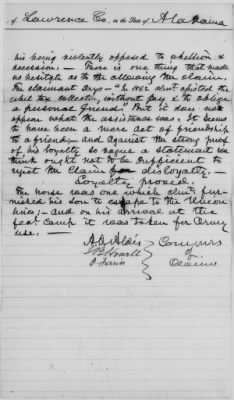 of Lawrence Co. in the State of Alabama
his being violently opposed to rebellion &
secession. — There is one thing that made
us hesitate as to the allowing the claim.
The claimant says — "In 1862 clmt. assisted the
white tax collector, without pay, & to oblige
a personal friend." But it does not
appear what the assistance was. It seems
to have been a mere act of friendship
to a friend, — and against the strong proof
of his loyalty so vague a statement we
think ought not to be sufficient to
reject the claim for disloyalty. —
Loyalty proved.
The horse was one which clmt. fur-
nished his son to escape to the Union
lines; — and on his arrival at the
fed. camp it was taken for Army
use. —
A. O. Aldis
J. B. Howell
O. Ferriss
Comrs
of
Claims